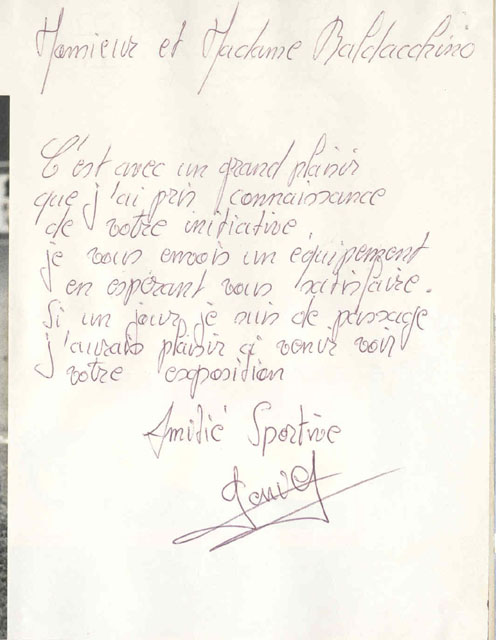 Monsieur et Madame Baldacchino
C'est avec un grand plaisir
que j'ai pris connaissance
de votre initiative.
je vous envois un équipement
en espérant vous satisfaire.
Si un jour, je suis de passage
j'aurais plaisir à venir voir
votre exposition
Amitié Sportive